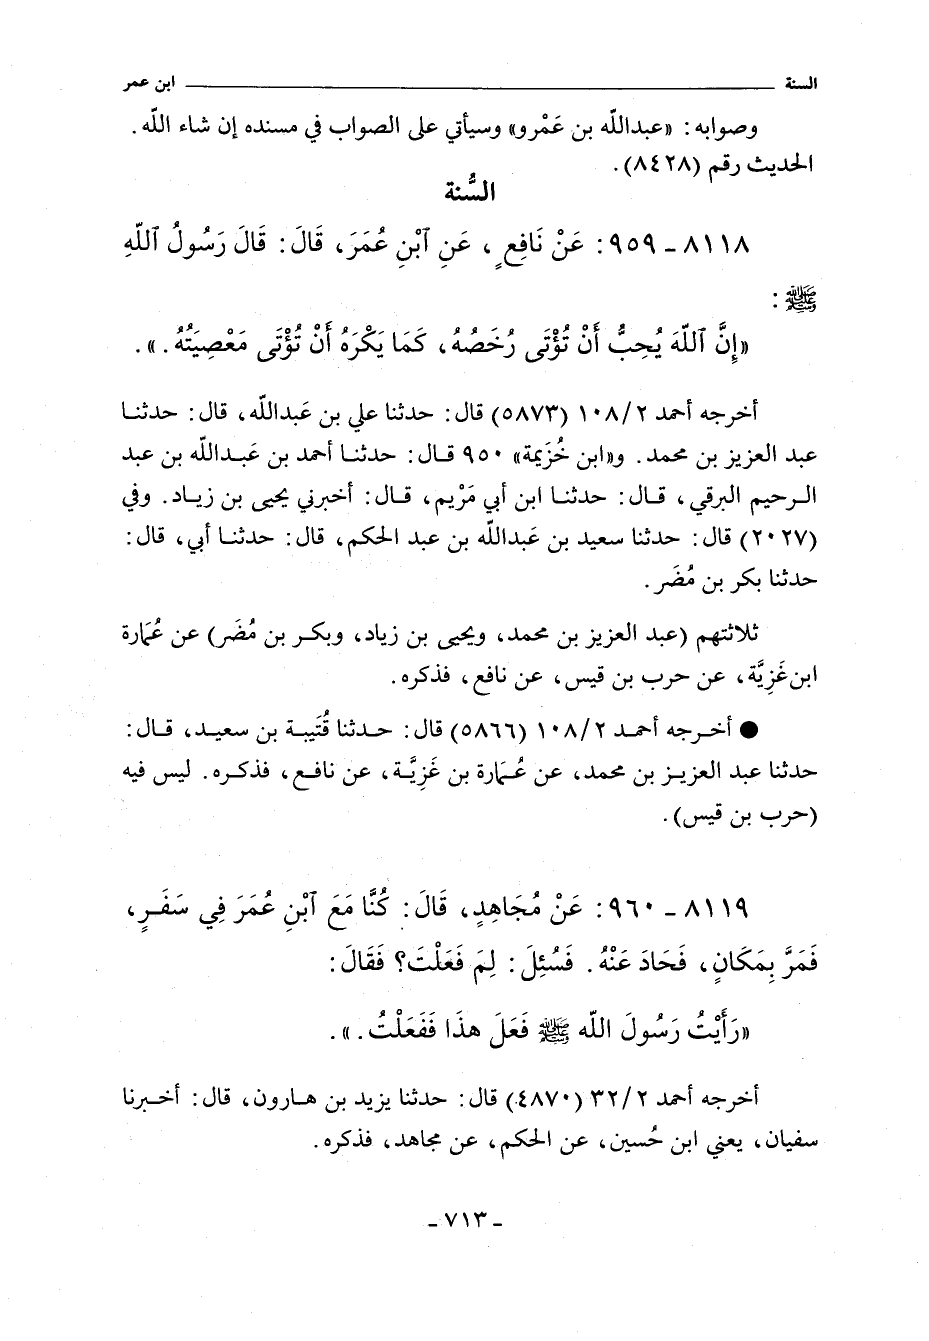 السنة ابن عمر
وصوابه: «عبدالله بن عَمْرو» وسيأتي على الصواب في مسنده إن شاء الله.
الحديث رقم (٨٤٢٨).
السُّنة
٨١١٨ - ٩٥٩: عَنْ نَافِعٍ، عَنِ ٱبْنِ عُمَرَ، قَالَ: قَالَ رَسُولُ ٱللَّهِ
ﷺ:
«إِنَّ ٱللَّهَ يُحِبُّ أَنْ تُؤْتَى رُخَصُهُ، كَمَا يَكْرَهُ أَنْ تُؤْتَى مَعْصِيَتُهُ.».
أخرجه أحمد ١٠٨/٢ (٥٨٧٣) قال: حدثنا علي بن عَبدالله، قال: حدثنا
عبد العزيز بن محمد. و«ابن خُزَيمة» ٩٥٠ قال: حدثنا أحمد بن عَبدالله بن عبد
الرحيم البرقي، قال: حدثنا ابن أبي مَرْيم، قال: أخبرني يحيى بن زياد. وفي
(٢٠٢٧) قال: حدثنا سعيد بن عَبدالله بن عبد الحكم، قال: حدثنا أبي، قال:
حدثنا بكر بن مُضَر.
ثلاثتهم (عبد العزيز بن محمد، ويحيى بن زياد، وبكر بن مُضَر) عن عُمَارة
ابن غَزِيَّة، عن حرب بن قيس، عن نافع، فذكره.
● أخرجه أحمد ١٠٨/٢ (٥٨٦٦) قال: حدثنا قُتَيبة بن سعيد، قال:
حدثنا عبد العزيز بن محمد، عن عُمَارة بن غَزِيَّة، عن نافع، فذكره. ليس فيه
(حرب بن قيس).
٨١١٩ - ٩٦٠: عَنْ مُجَاهِدٍ، قَالَ: كُنَّا مَعَ ٱبْنِ عُمَرَ فِي سَفَرٍ،
فَمَرَّ بِمَكَانٍ، فَحَادَ عَنْهُ. فَسُئِلَ: لِمَ فَعَلْتَ؟ فَقَالَ:
«رَأَيْتُ رَسُولَ الله ﷺ فَعَلَ هذَا فَفَعَلْتُ.».
أخرجه أحمد ٣٢/٢ (٤٨٧٠) قال: حدثنا يزيد بن هارون، قال: أخبرنا
سفيان، يعني ابن حُسين، عن الحكم، عن مجاهد، فذكره.
- ٧١٣ -